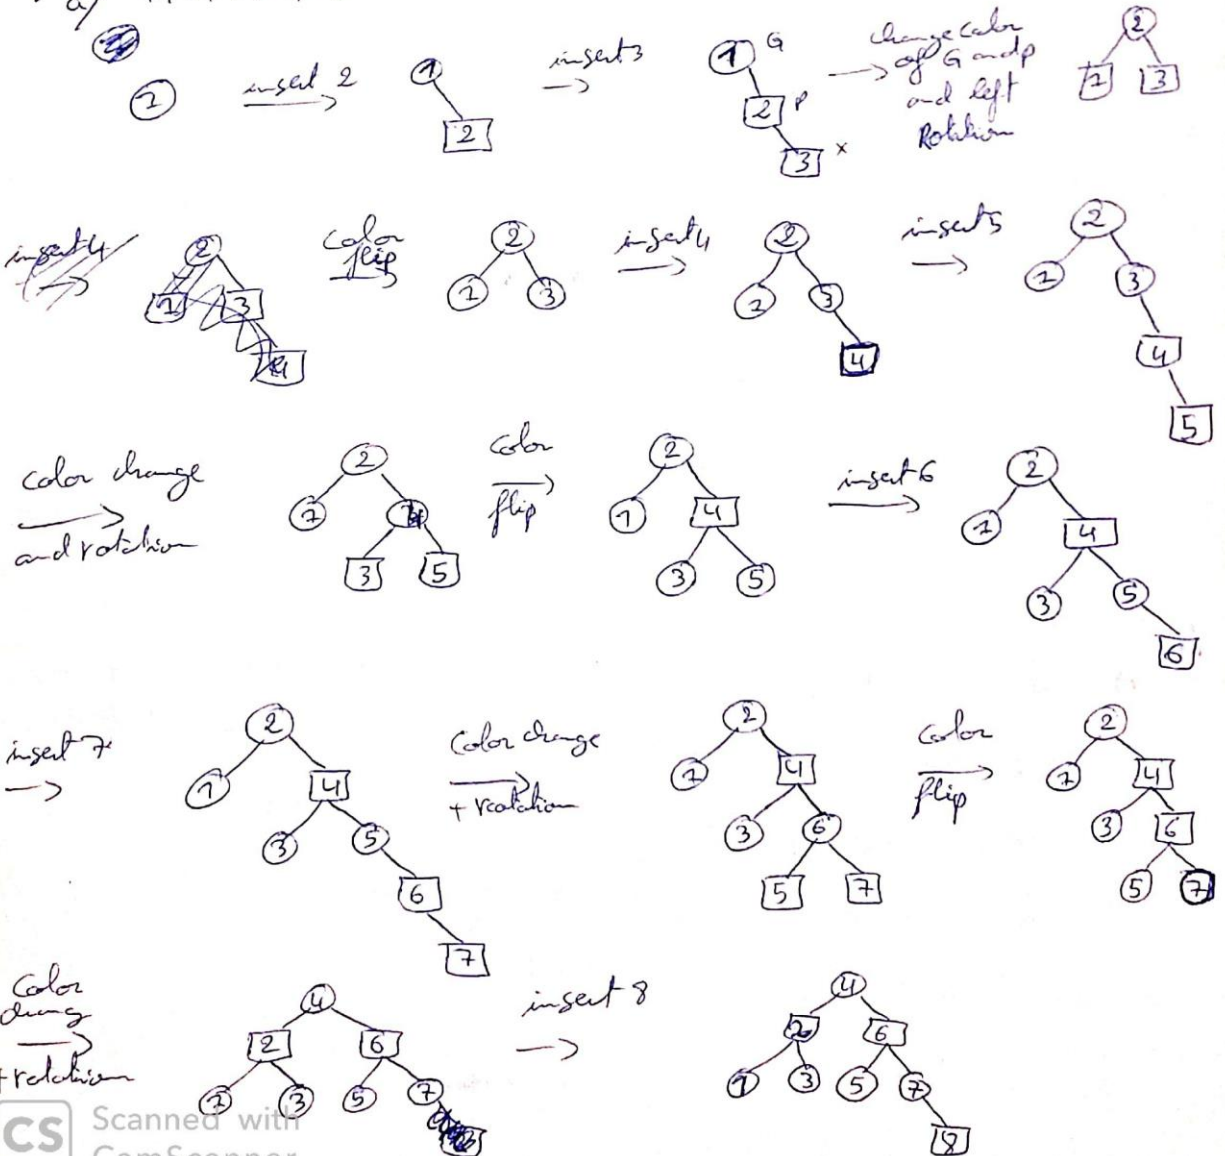 a/
1 insert 2 → 1 2 insert 3 → 1 G 2 P 3 x → change color of G and p and left Rotation 2 1 3
insert 4 → 2 1 3 4 color flip → 2 1 3 insert 4 → 2 1 3 4 insert 5 → 2 1 3 4 5
color change and rotation → 2 1 4 3 5 color flip → 2 1 4 3 5 insert 6 → 2 1 4 3 5 6
insert 7 → 2 1 4 3 5 6 7 Color change + rotation → 2 1 4 3 6 5 7 color flip → 2 1 4 3 6 5 7
Color + rotation → 4 2 6 1 3 5 7 insert 8 → 4 2 6 1 3 5 7 8
CS Scanned with
CamScanner